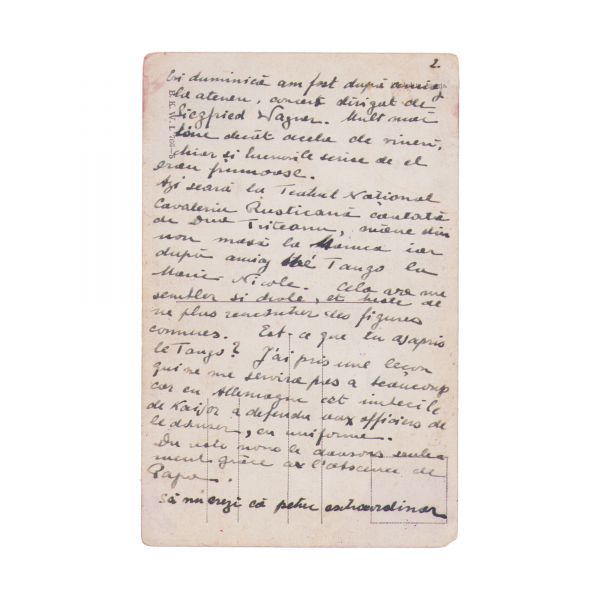 2.
Ici duminică am fost după amiaz
la ateneu, concert dirigat de
Siegfried Wagner. Mult mai
bine decât acela de vineri,
chiar și lucrurile scrise de el
erau frumoase.
Azi seară la Teatrul Național
Cavaleria Rusticană cântată
de Dna Triteanu, mâne din
nou masă la Manuca iar
după amiaz thé Tango la
Marie Nicole. Cela va me
sembler si drôle, et triste de
ne plus rencontrer des figures
connues. Est-ce que tu as appris
le Tango? J'ai pris une leçon
qui ne me servira pas a beaucoup
car en Allemagne cet imbécile
de Kaiser a défendu aux officiers de
le danser, en uniforme.
Du reste nous le dansons seule-
ment grâce à l'absence de
Papa.
Să nu crezi că petrec extraordinar
B.K.W.I.